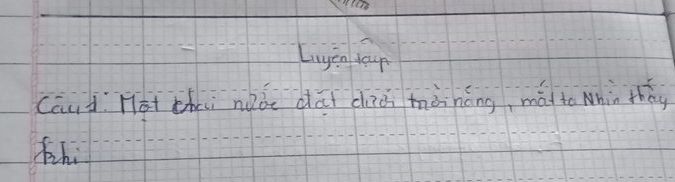 Luyện tập
Câu 1: Một chai nước đặt dưới trời nắng, mắt ta Nhìn thấy
khi